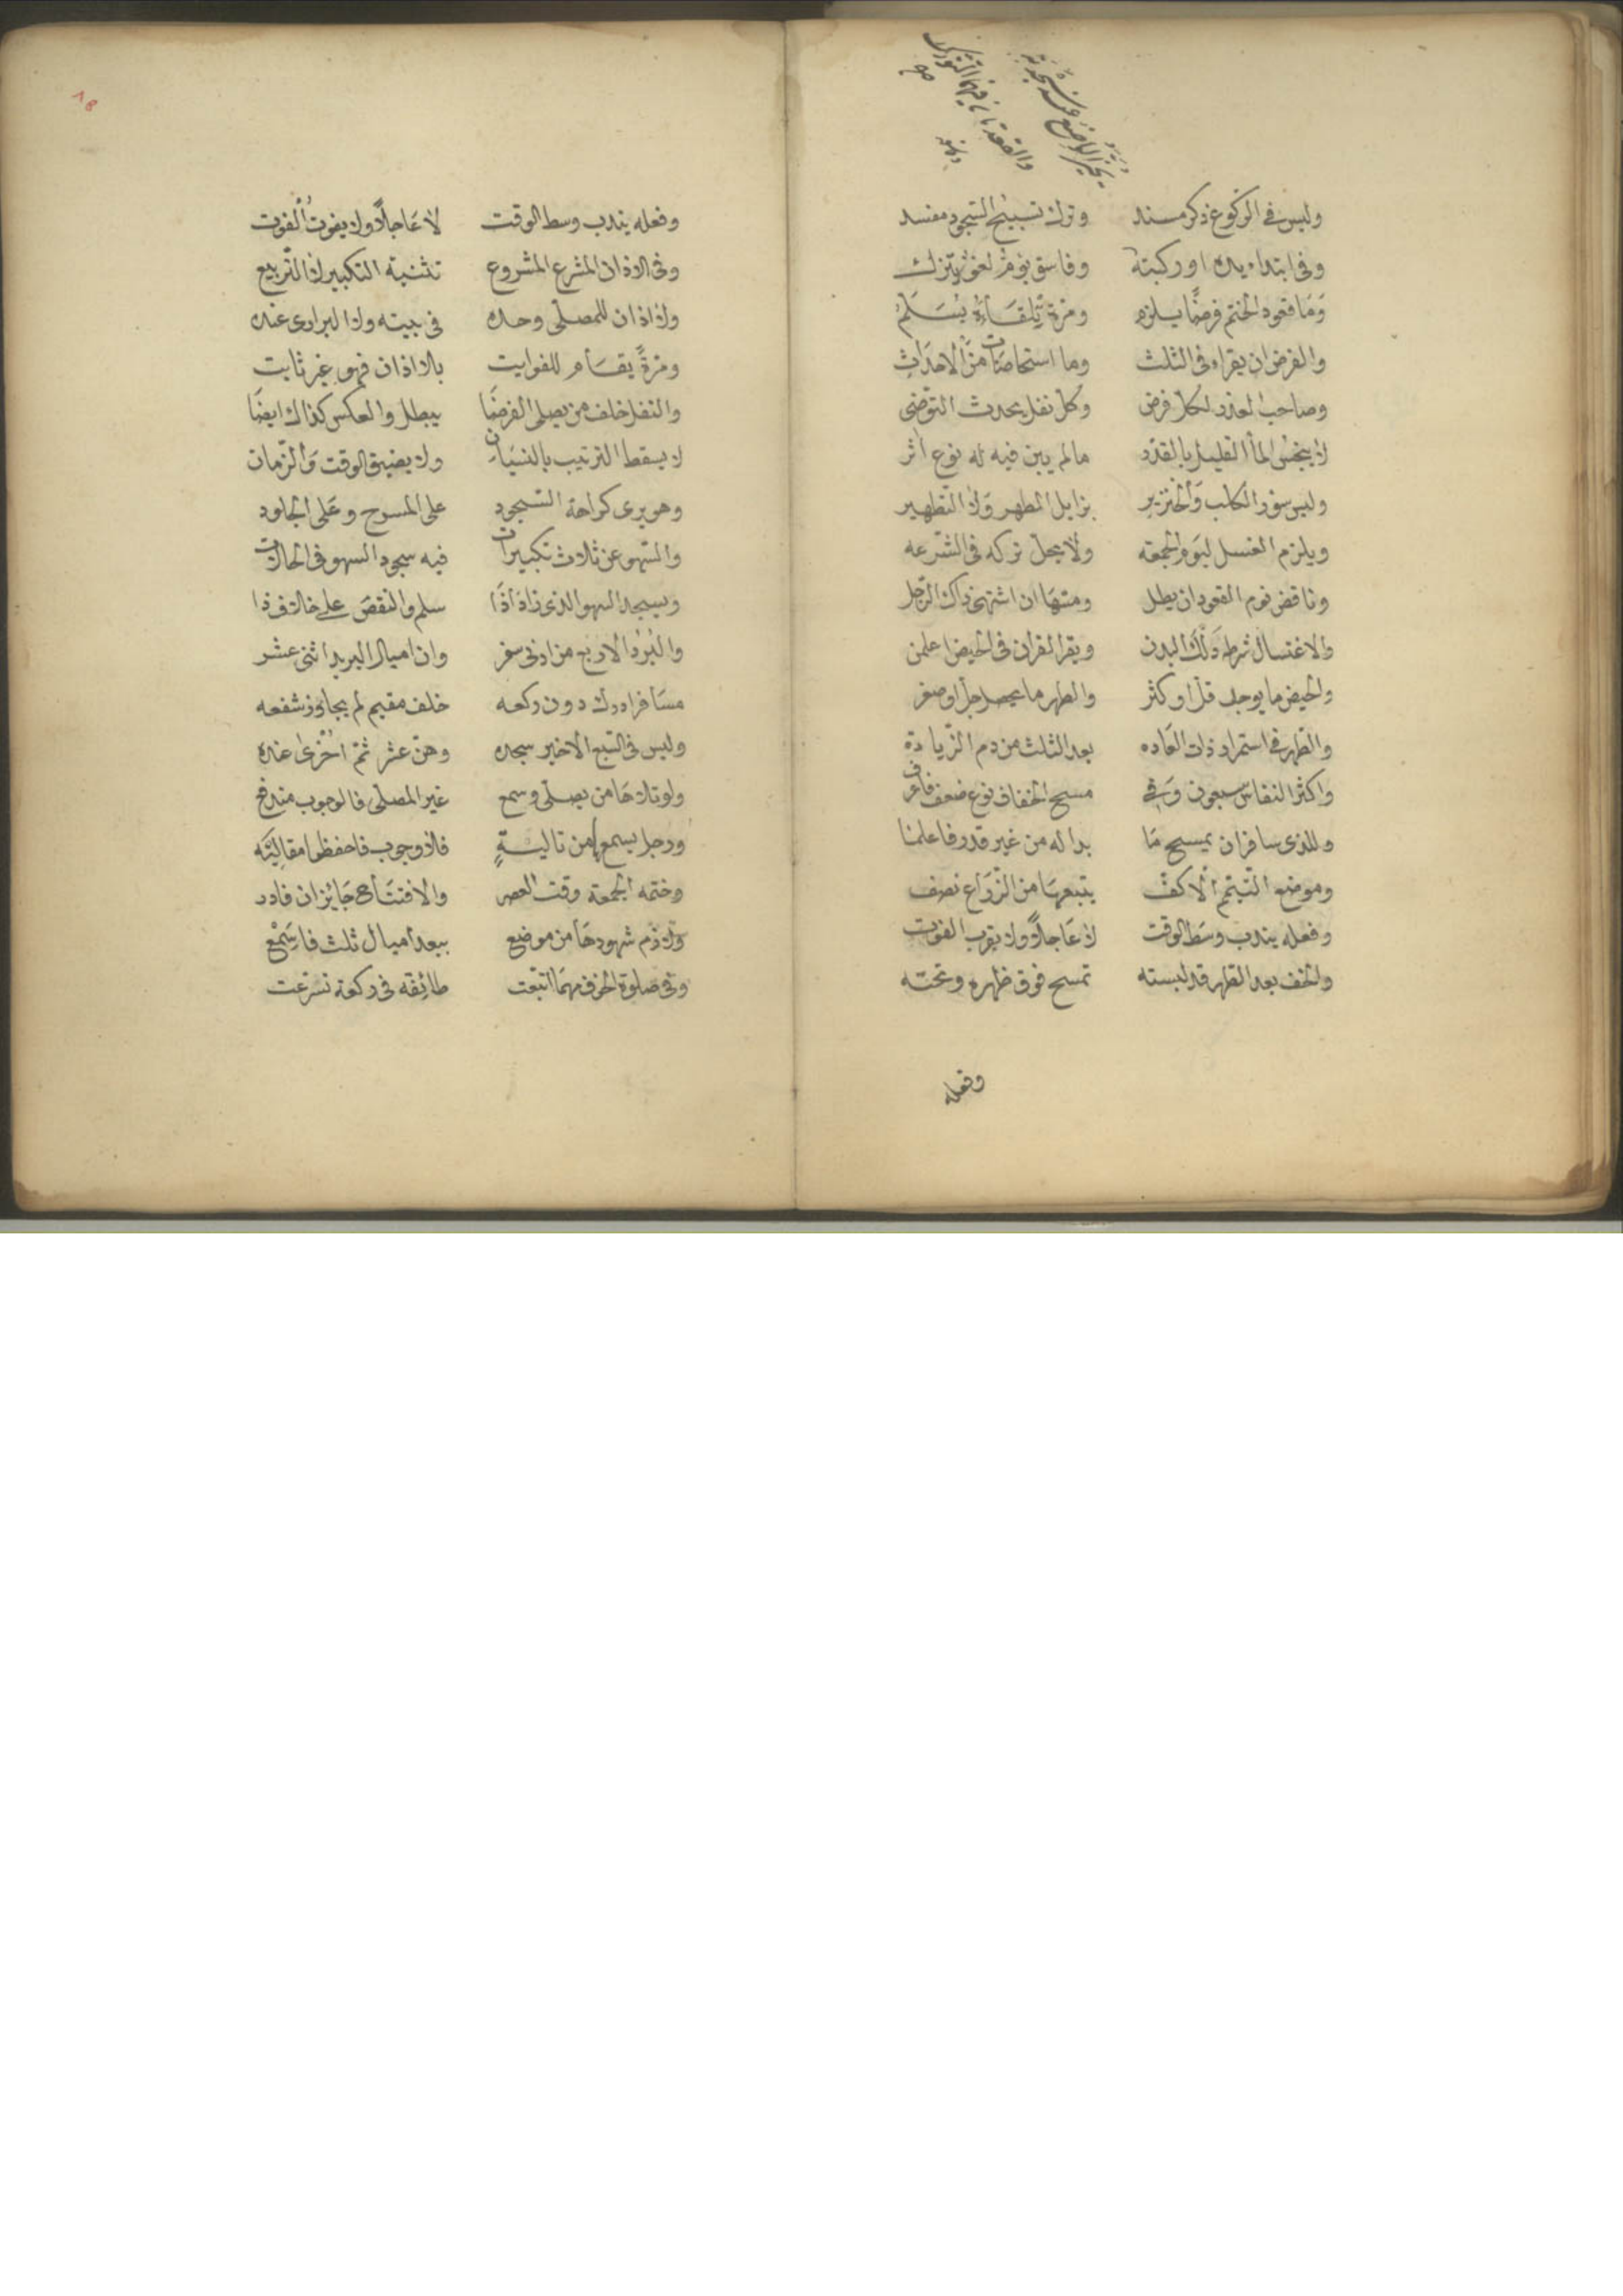 وليس في الركوع ذكر مسند وترك تسبيح السجود مفسد
وفي ابتداء يده او ركبته وفاسق يؤم لغو يترك
وَمَا قعود الختم فرضًا يلزم ومرة تلقاءه يُسَلّمُ
والفرض ان يقراء في الثلث وما استحاضات من الاحداث
وصاحب العذر لكل فرض وكل نفل يحدث التوضي
لا ينجس الماء القليل بالقذر مالم يبن فيه له نوع اثر
وليس سؤر الكلب والخنزير بزايل المطهر ولا التطهير
ويلزم الغسل ليوم الجمعه ولا يحل تركه في الشرعه
وناقض نوم القعود ان يطل ومسها ان اشتهى ذاك الرجل
والاغتسال شرطه دلك البدن ويقرا القران في الحيض اعلمن
والحيض ما يوجد قل او كثر والطهر ما يحصل جل او صغر
والطهر في استمرار ذات العاده بعد الثلث من دم الزيادة
واكثر النفاس سبعون وفي مسح الخفاف نوع ضعف فاعرف
وللذي سافر ان يمسح مَا بدا له من غير قدر فاعلمنا
وموضع التيمم الاكف يتبعها من الذراع نصف
وفعله يندب وسَط الوقت لا عَاجلاً ولا بقرب الفوت
والخف بعد الطهر قد لبسته تمسح فوق ظهره وتحته
وفعله
وفعله يندب وسط الوقت لا عَاجلاً ولا يفوتُ الفوت
وفي الاذان المشرع المشروع تثنية التكبير لا التربيع
ولا اذان للمصلّى وحده في بيته ولا البراري عنده
ومرةً يقام للفوايت بلا اذان فهو غير ثابت
والنفل خلف من يصلى الفرضَا يبطل والعكس كذاك ايضَا
لا يسقط الترتيب بالنسيان ولا بضيق الوقت وَالزمان
وهو يرى كراهة السجود على المسوح وعَلى الجلود
والسهو عن ثلاث تكبيرات فيه سجود السهو في الحالات
ويسجد السهو الذي زاد اذَا سلم والنقص على خلاف ذا
والبُرُد الاربع من ادنى سفر وان اميال البريد اثنى عشر
مسَافر ادرك دون ركعه خلف مقيم لم يجاوز شفعه
وليس في السبع الاخير سجده وهنّ عشر ثمّ اخرى عنده
ولو تلاهَا من يصلّى وسمع غير المصلّى فالوجوب مندفع
ورجل يسمع من تاليةٍ فلا وجوب فاحفظوا مقاليَه
وختمه الجمعة وقت العصر والافتتاح جَايزان فادر
ولازم شهودهَا من موضع ببعد اميال ثلث فاسَمْع
وفي صلوة الخوف مهمَا اتبعت طائفه في ركعة تسرعت